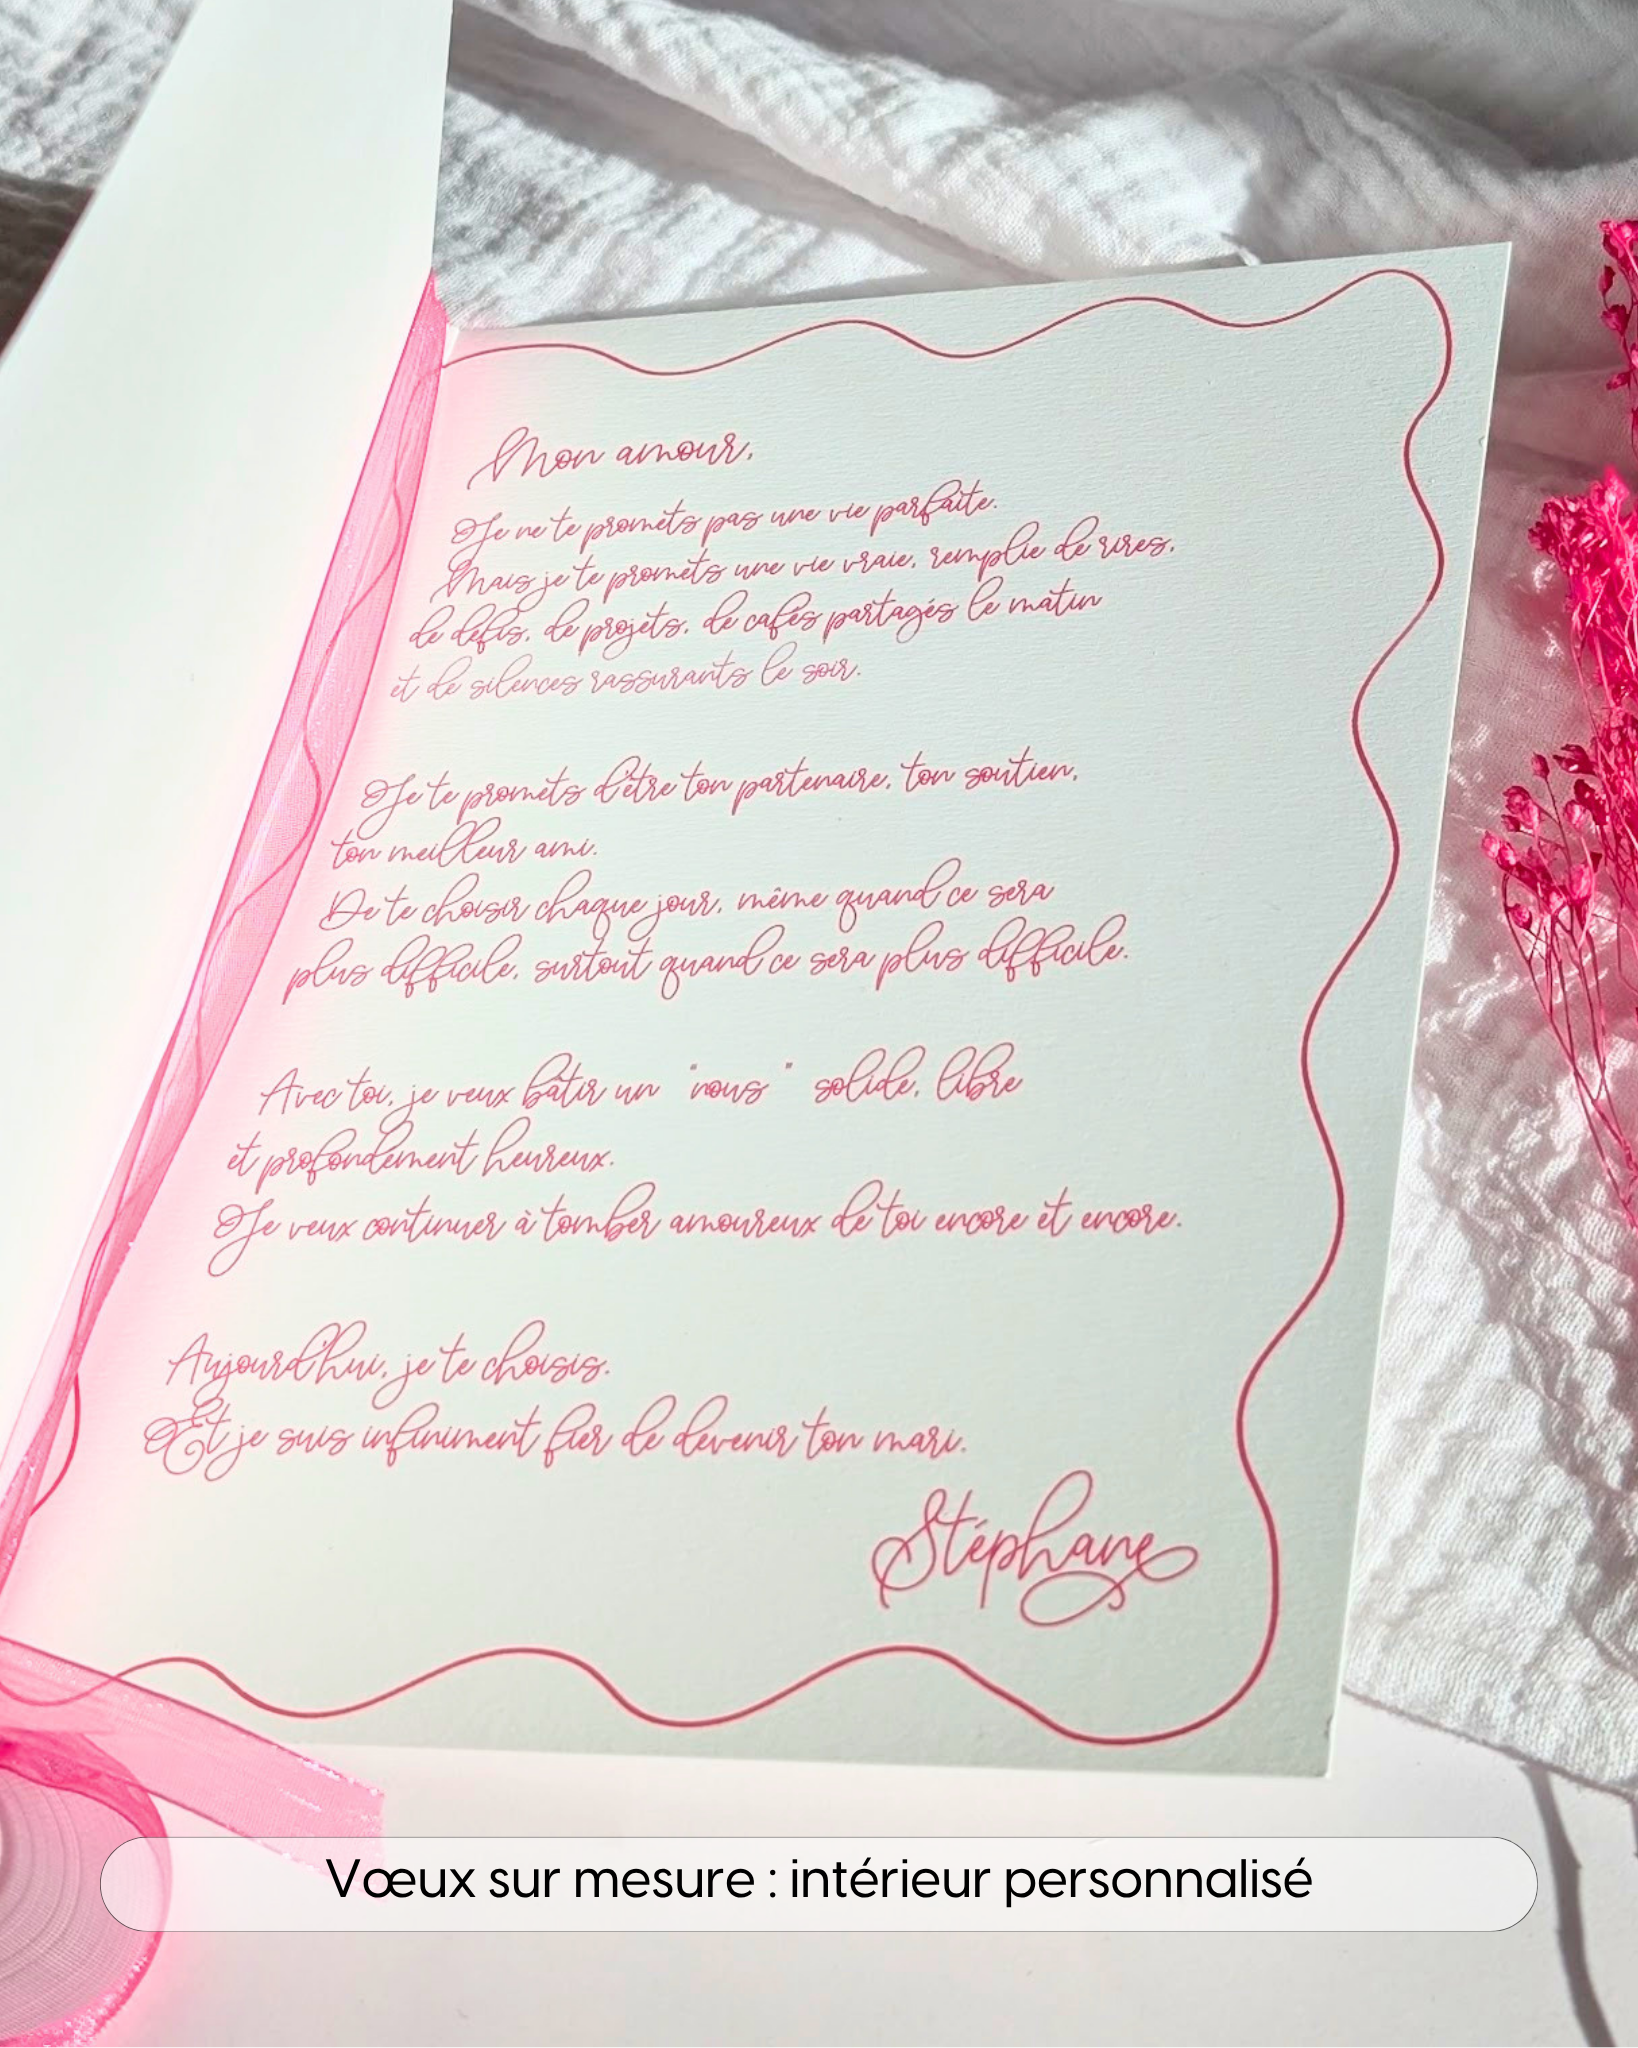 Mon amour,
Je ne te promets pas une vie parfaite.
Mais je te promets une vie vraie, remplie de rires,
de défis, de projets, de cafés partagés le matin
et de silences rassurants le soir.
Je te promets d'être ton partenaire, ton soutien,
ton meilleur ami.
De te choisir chaque jour, même quand ce sera
plus difficile, surtout quand ce sera plus difficile.
Avec toi, je veux bâtir un "nous" solide, libre
et profondément heureux.
Je veux continuer à tomber amoureux de toi encore et encore.
Aujourd'hui, je te choisis.
Et je suis infiniment fier de devenir ton mari.
Stéphane
Vœux sur mesure : intérieur personnalisé